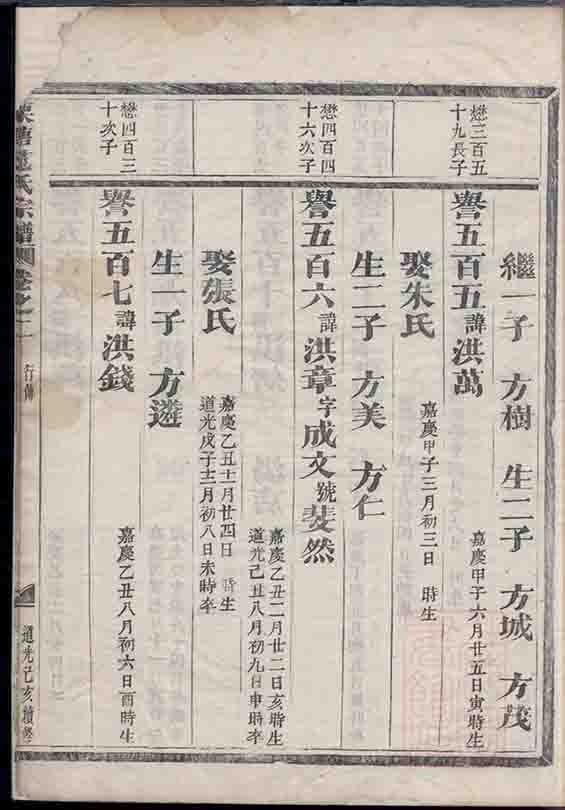 繼一子 方樹 生二子 方城 方茂
懋三百五
十九長子
譽五百五 諱 洪萬 嘉慶甲子六月廿五日寅時生
娶朱氏 嘉慶甲子三月初三日 時生
生二子 方美 方仁
懋四百四
十六次子
譽五百六 諱 洪章 字 成文 號 斐然
嘉慶乙丑二月廿二日亥時生
道光己丑八月初九日申時卒
娶張氏
嘉慶乙丑十一月廿四日 時生
道光戊子十二月初八日未時卒
生一子 方遴
懋四百三
十次子
譽五百七 諱 洪錢 嘉慶乙丑八月初六日酉時生
氏宗譜 卷之二 行傳 道光己亥續修